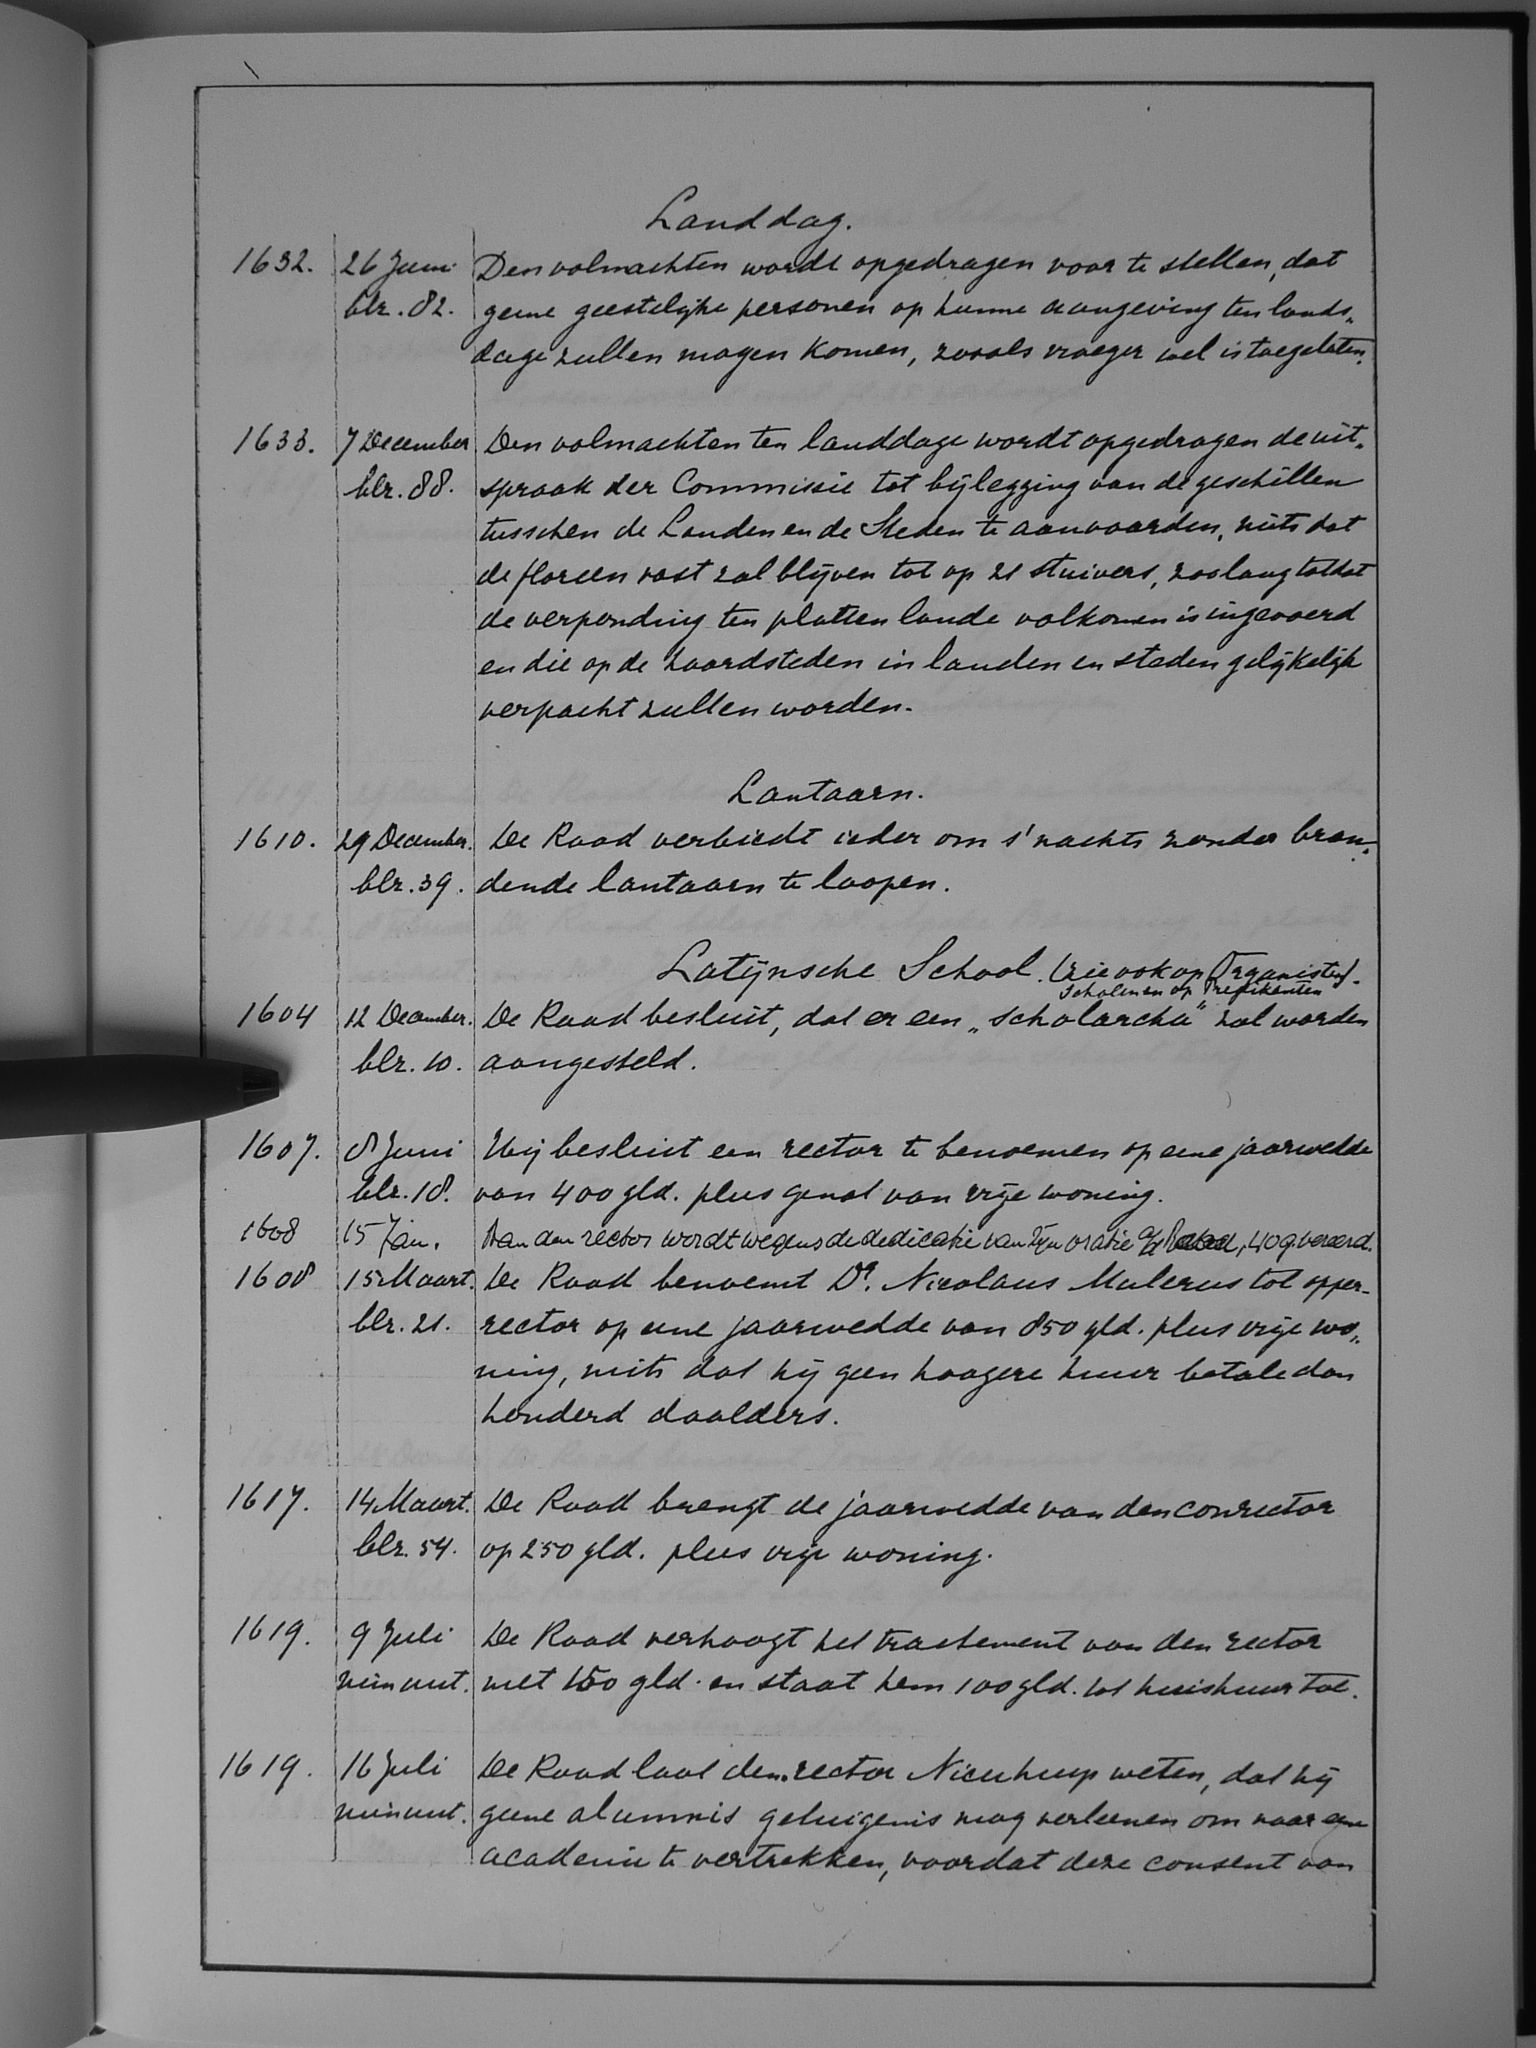 Landdag.
1632. 26 Juni Den volmachten wordt opgedragen voor te stellen, dat
blz. 82. geene geestelijke personen op hunne aangeving ten lands„
dage zullen mogen komen, zooals vroeger wel is toegelaten.
1633. 7 December Den volmachten ten landdage wordt opgedragen de uit„
blz. 88. spraak der Commissie tot bijlegging van de geschillen
tusschen de Landen en de Steden te aanvaarden, mits dat
de floreen vast zal blijven tot op 21 stuivers, zoolang totdat
de verponding ten platten lande volkomen is ingevoerd
en die op de haardsteden in landen en steden gelijkelijk
verpacht zullen worden.
Lantaarn.
1610. 29 December. De Raad verbiedt ieder om s' nachts zonder bran„
blz. 39. dende lantaarn te loopen.
Latijnsche School. (zie ook op Organisten).
Scholen en op Predikanten
1604 12 December. De Raad besluit, dat er een „scholarcha" zal worden
blz. 10. aangesteld.
1607. 8 Juni Hij besluit een rector te benoemen op eene jaarwedde
blz. 18. van 400 gld. plus genot van vrije woning.
1608 15 Jan. Aan den rector wordt wegens de dedicatie van zijn oratie a/d 40 g. vereerd.
1608 15 Maart. De Raad benoemt Dr. Nicolaus Mulerus tot opper-
blz. 21. rector op eene jaarwedde van 850 gld. plus vrije wo„
ning, mits dat hij geen hoogere huur betale dan
honderd daalders.
1617. 14 Maart. De Raad brengt de jaarwedde van den conrector
blz. 54. op 250 gld. plus vrije woning.
1619. 9 Juli De Raad verhoogt het tractement van den rector
minuut. met 150 gld. en staat hem 100 gld. tot huishuur toe.
1619. 16 Juli De Raad laat den rector Nicuhuys weten, dat hij
minuut. geene alumnis getuigenis mag verleenen om naar eene
academie te vertrekken, voordat deze consent van